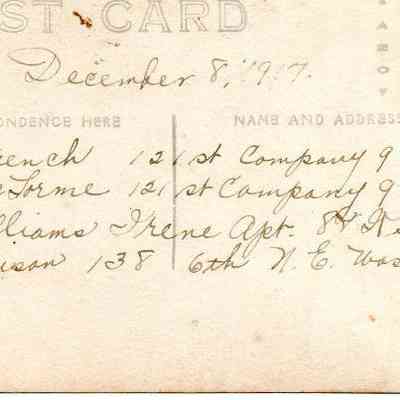 ST CARD
December 8, 1917.
ONDENCE HERE
NAME AND ADDRESS
ench 121st Company 9
Lorme 121st Company 9
lliams Irene Apt. 8
ison 138 6th N. E. Was